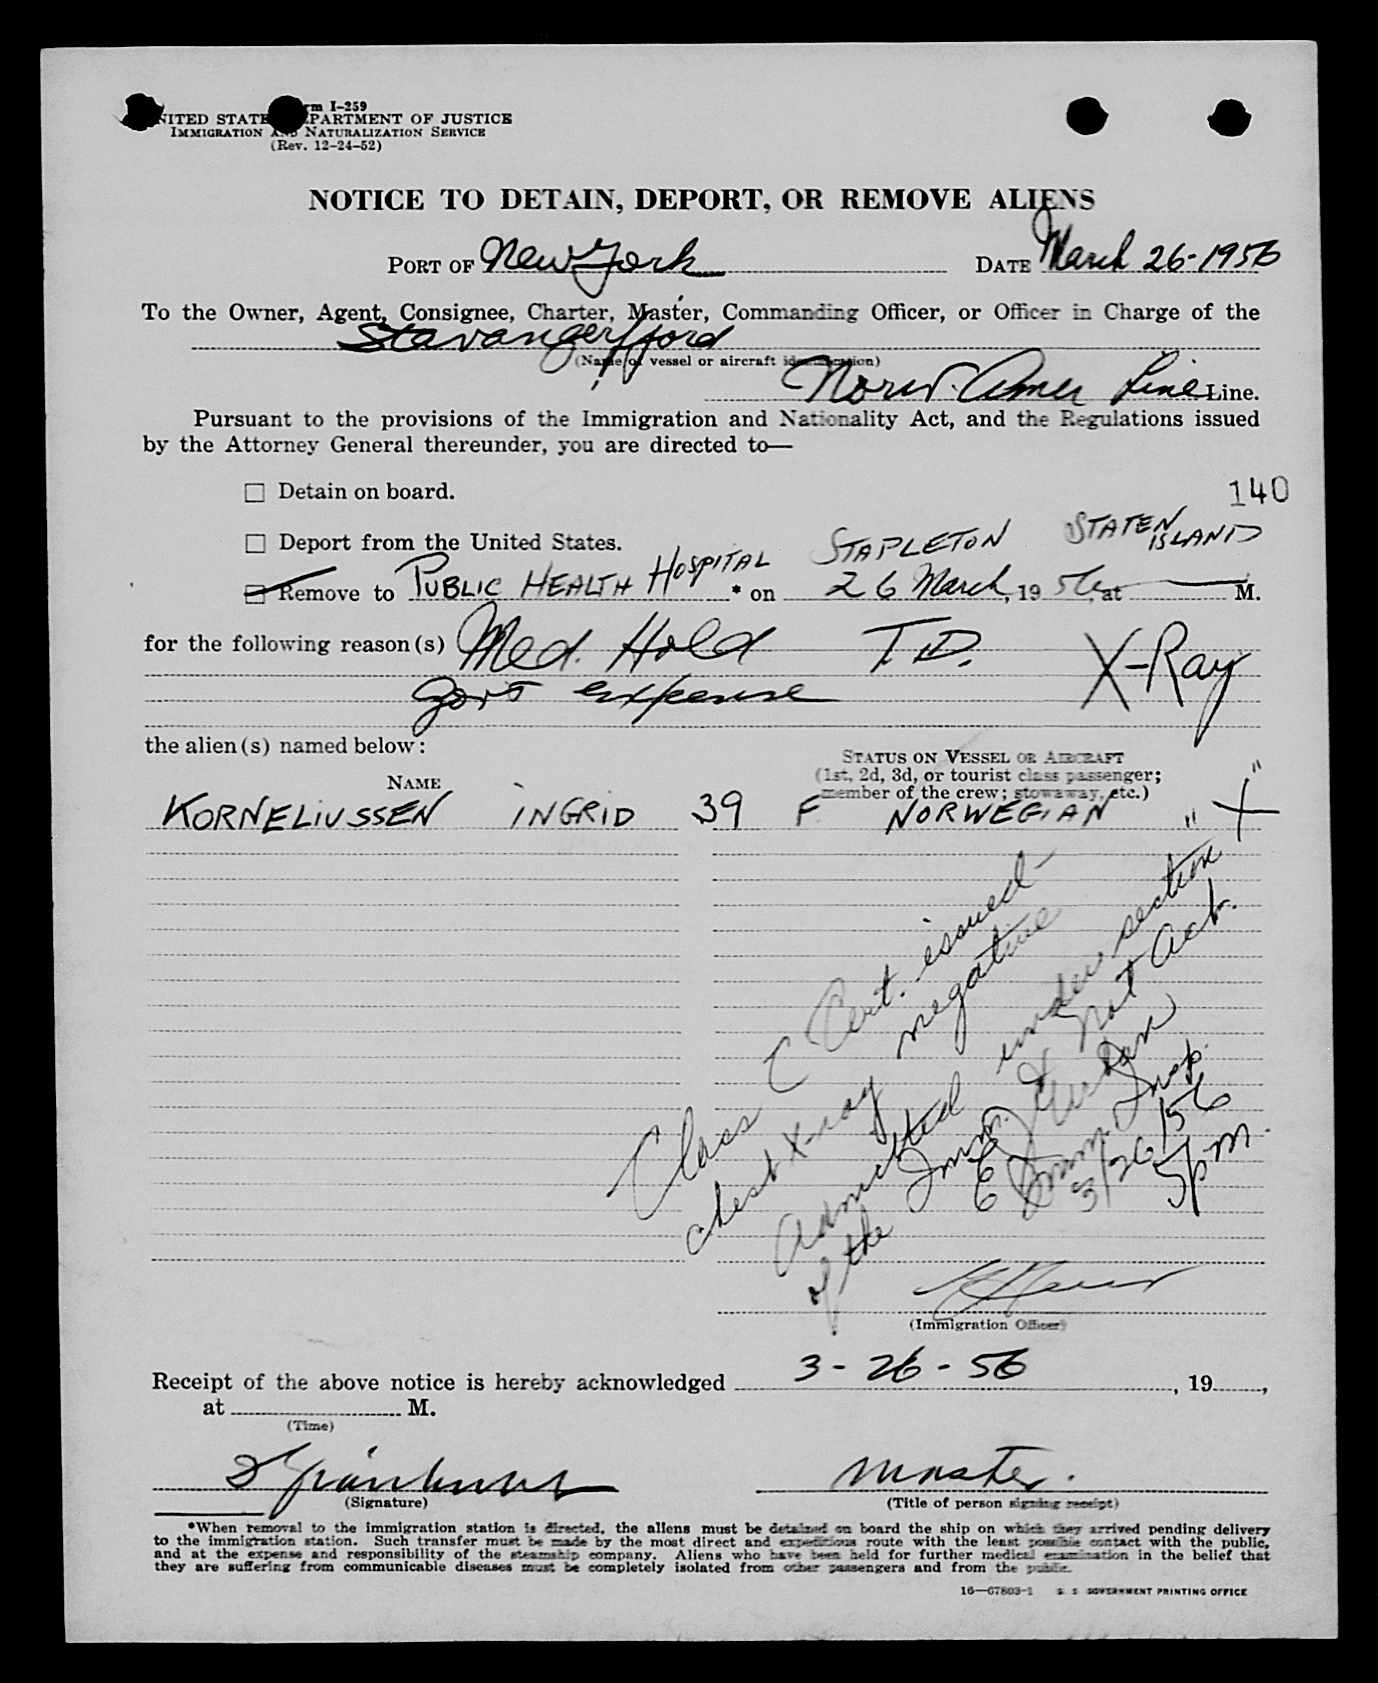 Form I-259
UNITED STATES DEPARTMENT OF JUSTICE
IMMIGRATION AND NATURALIZATION SERVICE
(Rev. 12-24-52)
NOTICE TO DETAIN, DEPORT, OR REMOVE ALIENS
PORT OF New York DATE March 26-1956
To the Owner, Agent, Consignee, Charter, Master, Commanding Officer, or Officer in Charge of the
Stavangerfjord
(Name of vessel or aircraft identification)
Norw. Amer Line Line.
Pursuant to the provisions of the Immigration and Nationality Act, and the Regulations issued
by the Attorney General thereunder, you are directed to—
☐ Detain on board.
140
☐ Deport from the United States.
STAPLETON STATEN ISLAND
Remove to PUBLIC HEALTH HOSPITAL * on 26 March, 1956 at M.
for the following reason(s) Med. Hold T.D. X-Ray
Govt expense
the alien(s) named below:
NAME
STATUS ON VESSEL OR AIRCRAFT
(1st, 2d, 3d, or tourist class passenger;
member of the crew; stowaway, etc.)
KORNELIUSSEN INGRID 39 F NORWEGIAN " + "
Class C Cert. issued-
chest X-ray negative
Admitted under section
of the Imm. & Nat Act.
Imm. Insp.
3/26/56
5pm.
(Immigration Officer)
Receipt of the above notice is hereby acknowledged 3-26-56, 19
at M.
(Time)
master.
(Signature)
(Title of person signing receipt)
*When removal to the immigration station is directed, the aliens must be detained on board the ship on which they arrived pending delivery
to the immigration station. Such transfer must be made by the most direct and expeditious route with the least possible contact with the public,
and at the expense and responsibility of the steamship company. Aliens who have been held for further medical examination in the belief that
they are suffering from communicable diseases must be completely isolated from other passengers and from the public.
16—67803-1 U. S. GOVERNMENT PRINTING OFFICE